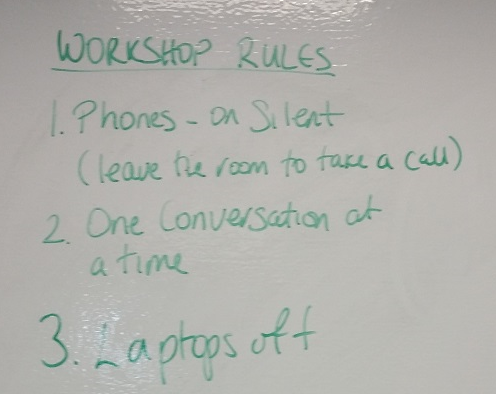 WORKSHOP RULES
1. Phones - on Silent
(leave the room to take a call)
2. One Conversation at
a time
3. Laptops off